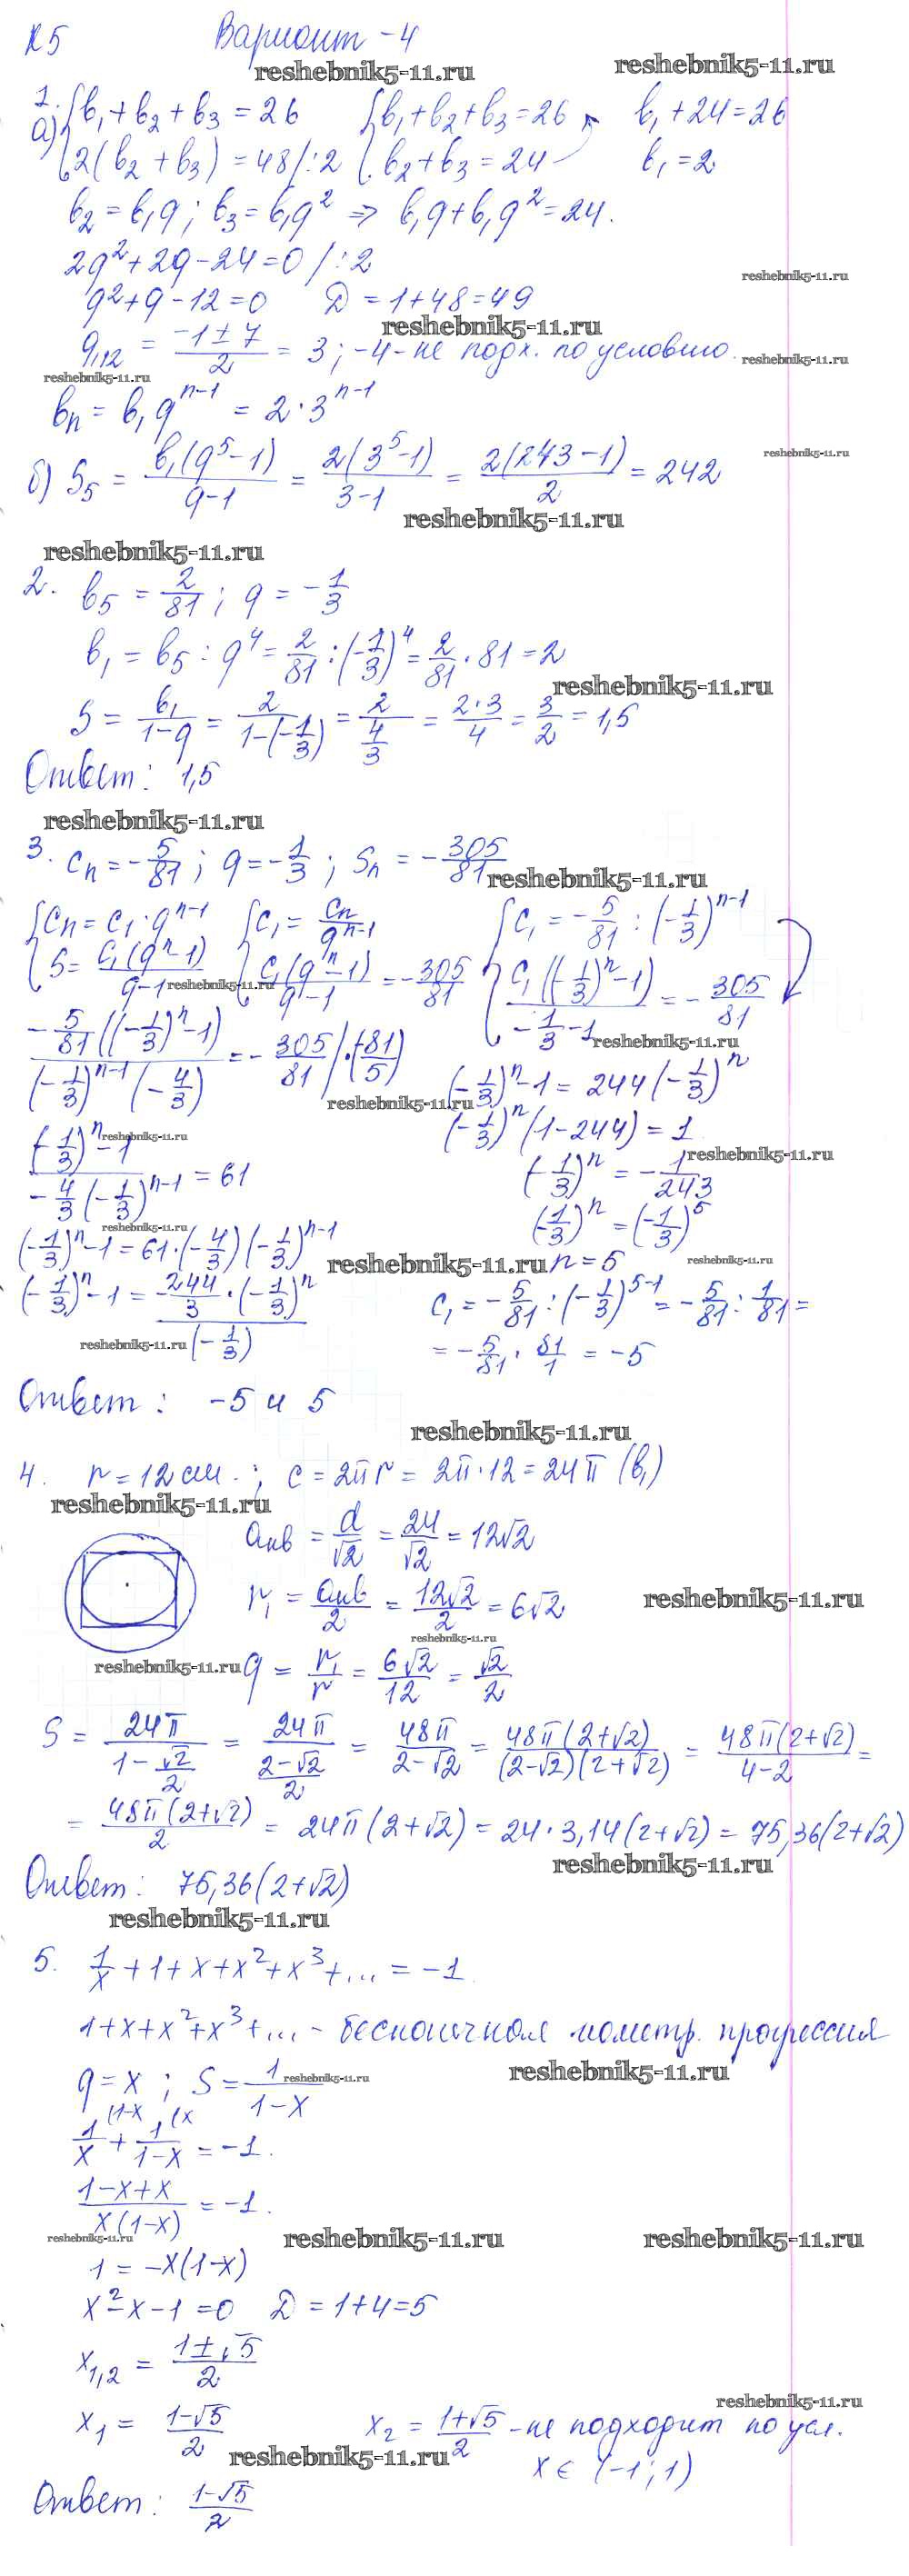 К5 Вариант - 4
reshebnik5-11.ru reshebnik5-11.ru
1. а) { b₁ + b₂ + b₃ = 26 { b₁ + b₂ + b₃ = 26 b₁ + 24 = 26
{ 2(b₂ + b₃) = 48 / :2 { b₂ + b₃ = 24 b₁ = 2
b₂ = b₁q ; b₃ = b₁q² ⇒ b₁q + b₁q² = 24.
2q² + 2q - 24 = 0 / :2
reshebnik5-11.ru
q² + q - 12 = 0 D = 1 + 48 = 49
reshebnik5-11.ru
q₁,₂ = (-1 ± 7)/2 = 3 ; -4 - не подх. по условию.
reshebnik5-11.ru
reshebnik5-11.ru
bₙ = b₁qⁿ⁻¹ = 2 · 3ⁿ⁻¹
reshebnik5-11.ru
б) S₅ = b₁(q⁵ - 1)/(q - 1) = 2(3⁵ - 1)/(3 - 1) = 2(243 - 1)/2 = 242
reshebnik5-11.ru
reshebnik5-11.ru
2. b₅ = 2/81 ; q = -1/3
b₁ = b₅ : q⁴ = 2/81 : (-1/3)⁴ = 2/81 · 81 = 2
reshebnik5-11.ru
S = b₁/(1 - q) = 2/(1 - (-1/3)) = 2/(4/3) = 2·3/4 = 3/2 = 1,5
Ответ: 1,5
reshebnik5-11.ru
3. cₙ = -5/81 ; q = -1/3 ; Sₙ = -305/81
reshebnik5-11.ru
{ cₙ = c₁ · qⁿ⁻¹ { c₁ = cₙ/qⁿ⁻¹ { c₁ = -5/81 : (-1/3)ⁿ⁻¹
{ S = c₁(qⁿ - 1)/(q - 1) { c₁(qⁿ - 1)/(q - 1) = -305/81 { c₁((-1/3)ⁿ - 1)/(-1/3 - 1) = -305/81
reshebnik5-11.ru
reshebnik5-11.ru
-5/81((-1/3)ⁿ - 1)/((-1/3)ⁿ⁻¹(-4/3)) = -305/81 / · (-81/5)
reshebnik5-11.ru
(-1/3)ⁿ - 1 = 244(-1/3)ⁿ
(-1/3)ⁿ(1 - 244) = 1
reshebnik5-11.ru
reshebnik5-11.ru
((-1/3)ⁿ - 1)/(-4/3(-1/3)ⁿ⁻¹) = 61 (-1/3)ⁿ = -1/243
reshebnik5-11.ru
(-1/3)ⁿ - 1 = 61 · (-4/3)(-1/3)ⁿ⁻¹ (-1/3)ⁿ = (-1/3)⁵
reshebnik5-11.ru n = 5
reshebnik5-11.ru
(-1/3)ⁿ - 1 = (-244/3 · (-1/3)ⁿ)/(-1/3) c₁ = -5/81 : (-1/3)⁵⁻¹ = -5/81 : 1/81 =
reshebnik5-11.ru
= -5/81 · 81/1 = -5
Ответ: -5 и 5
reshebnik5-11.ru
4. r = 12 см. ; c = 2πr = 2π · 12 = 24π (b₁)
reshebnik5-11.ru
aкв = d/√2 = 24/√2 = 12√2
r₁ = aкв/2 = 12√2/2 = 6√2
reshebnik5-11.ru
reshebnik5-11.ru
reshebnik5-11.ru
q = r₁/r = 6√2/12 = √2/2
S = 24π/(1 - √2/2) = 24π/((2 - √2)/2) = 48π/(2 - √2) = 48π(2 + √2)/((2 - √2)(2 + √2)) = 48π(2 + √2)/(4 - 2) =
= 48π(2 + √2)/2 = 24π(2 + √2) = 24 · 3,14(2 + √2) = 75,36(2 + √2)
reshebnik5-11.ru
Ответ: 75,36(2 + √2)
reshebnik5-11.ru
5. 1/x + 1 + x + x² + x³ + ... = -1.
1 + x + x² + x³ + ... - бесконечная геометр. прогрессия
reshebnik5-11.ru
q = x ; S = 1/(1 - x)
reshebnik5-11.ru
1/x (1-x + 1/(1 - x) (x = -1.
(1 - x + x)/(x(1 - x)) = -1.
reshebnik5-11.ru reshebnik5-11.ru reshebnik5-11.ru
1 = -x(1 - x)
x² - x - 1 = 0 D = 1 + 4 = 5
x₁,₂ = (1 ± √5)/2
reshebnik5-11.ru
x₁ = (1 - √5)/2 x₂ = (1 + √5)/2 - не подходит по усл.
reshebnik5-11.ru
x ∈ (-1 ; 1)
Ответ: (1 - √5)/2